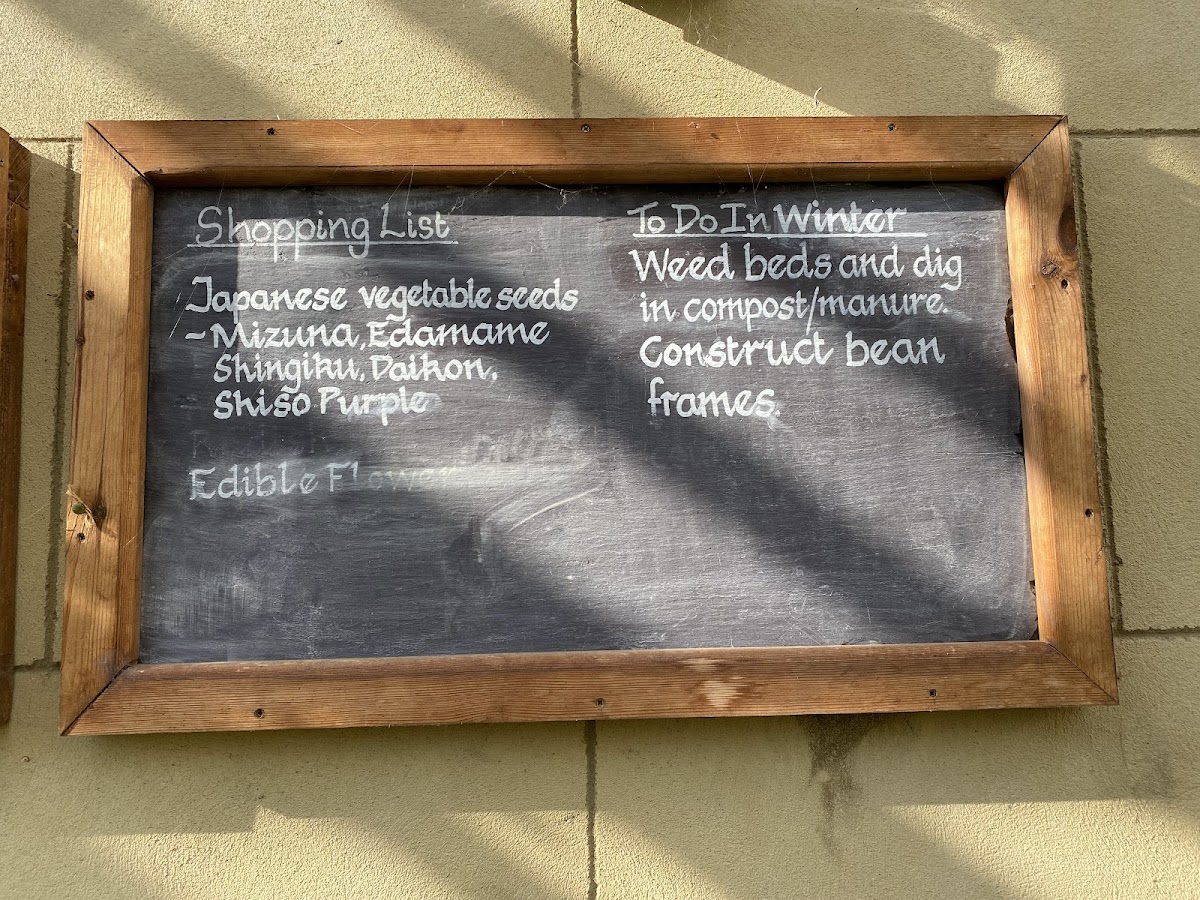 Shopping List
Japanese vegetable seeds
- Mizuna, Edamame
Shingiku, Daikon,
Shiso Purple
Edible Flower
To Do In Winter
Weed beds and dig
in compost/manure.
Construct bean
frames.